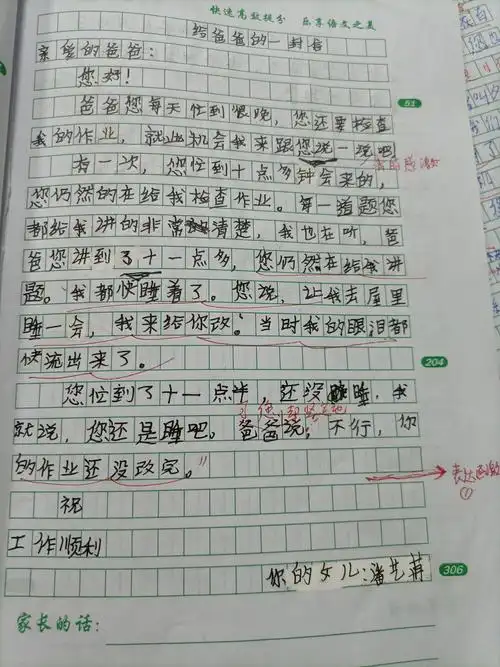 快速高效提分 乐享语文之美
给爸爸的一封信
亲爱的爸爸：
您好！
爸爸您每天忙到很晚，您还要检查
51
我的作业，就出机会我来跟您说一说吧
有一次，您忙到十点多钟会来的，
您仍然的在给我检查作业。每一道题您
都给我讲的非常清楚，我也在听，爸
爸您讲到了十一点多，您仍然在给我讲
题。我都快睡着了。您说，让我去屋里
睡一会，我来给你改。当时我的眼泪都
快流出来了。
204
您忙到了十一点半，还没睡，我
就说，您还是睡吧。爸爸说：不行，你
的作业还没改完。"
表达
①
祝
工作顺利
你的女儿：潘艺
306
家长的话：